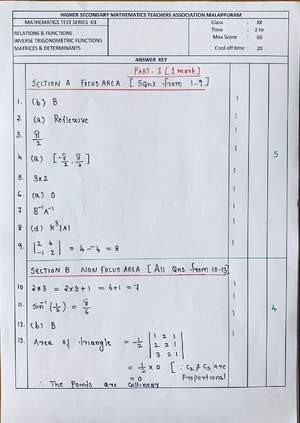 HIGHER SECONDARY MATHEMATICS TEACHERS ASSOCIATION MALAPPURAM
MATHEMATICS TEST SERIES -03
Class : XII
RELATIONS & FUNCTIONS
Time : 2 Hr
INVERSE TRIGONOMETRIC FUNCTIONS
Max Score : 60
MATRICES & DETERMINANTS
Cool off time : 20
ANSWER KEY
PART - I [1 mark]
SECTION A FOCUS AREA [5 Qns from 1-9]
1. (b) B 1
2. (a) Reflexive 1
3. π/2 1
4 (a) [-π/2, π/2] 1 5
5. 3×2 1
6. (a) 0 1
7 B⁻¹A⁻¹ 1
8 (d) K³|A| 1
9. |2 4; -1 2| = 4 - -4 = 8 1
SECTION B NON FOCUS AREA [All Qns from 10-13]
10 2*3 = 2×3+1 = 6+1 = 7 1
11. sin⁻¹(1/2) = π/6 1 4
12. (b) B 1
13. Area of triangle = 1/2 |1 2 1; 2 2 1; 3 2 1| 1
= 1/2 × 0 [∵ C₂ & C₃ are
= 0 Proportional
∴ The Points are collinear